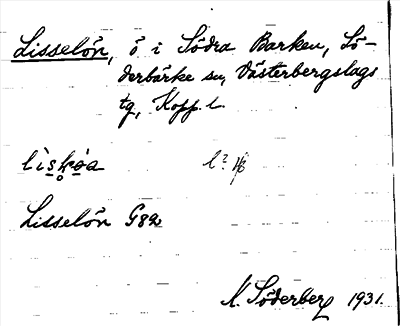 Lisselön, ö i Södra Barken, Sö-
derbärke sn, Västerbergslags
tg, Kopp. l.
Lisselön G82
K. Söderberg 1931.